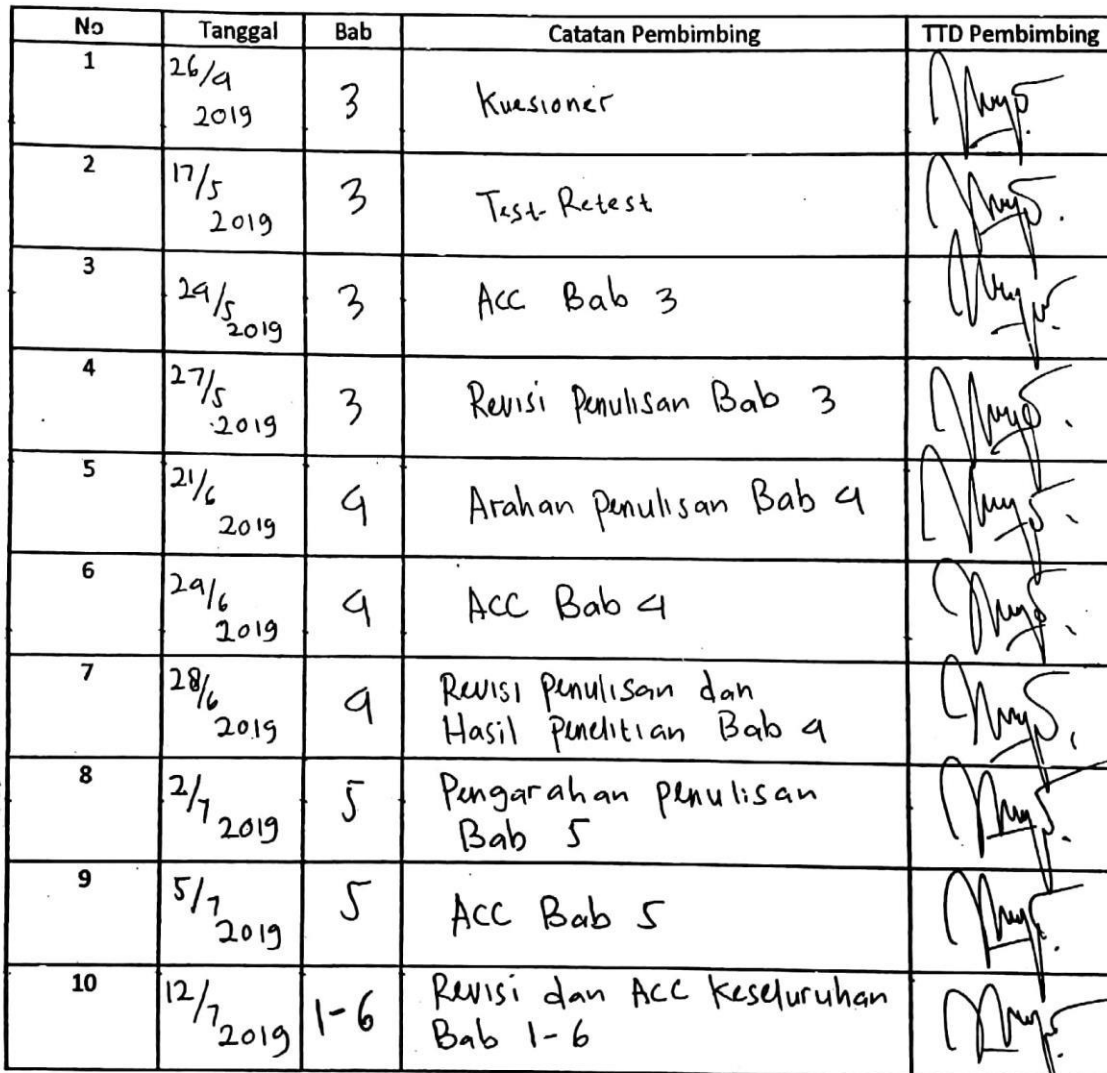 No Tanggal Bab Catatan Pembimbing TTD Pembimbing
1 26/4 2019 3 Kuesioner
2 17/5 2019 3 Test-Retest
3 24/5 2019 3 ACC Bab 3
4 27/5 2019 3 Revisi Penulisan Bab 3
5 21/6 2019 4 Arahan penulisan Bab 4
6 24/6 2019 4 ACC Bab 4
7 28/6 2019 4 Revisi penulisan dan
Hasil penelitian Bab 4
8 2/7 2019 5 Pengarahan penulisan
Bab 5
9 5/7 2019 5 ACC Bab 5
10 12/7 2019 1-6 Revisi dan ACC keseluruhan
Bab 1-6